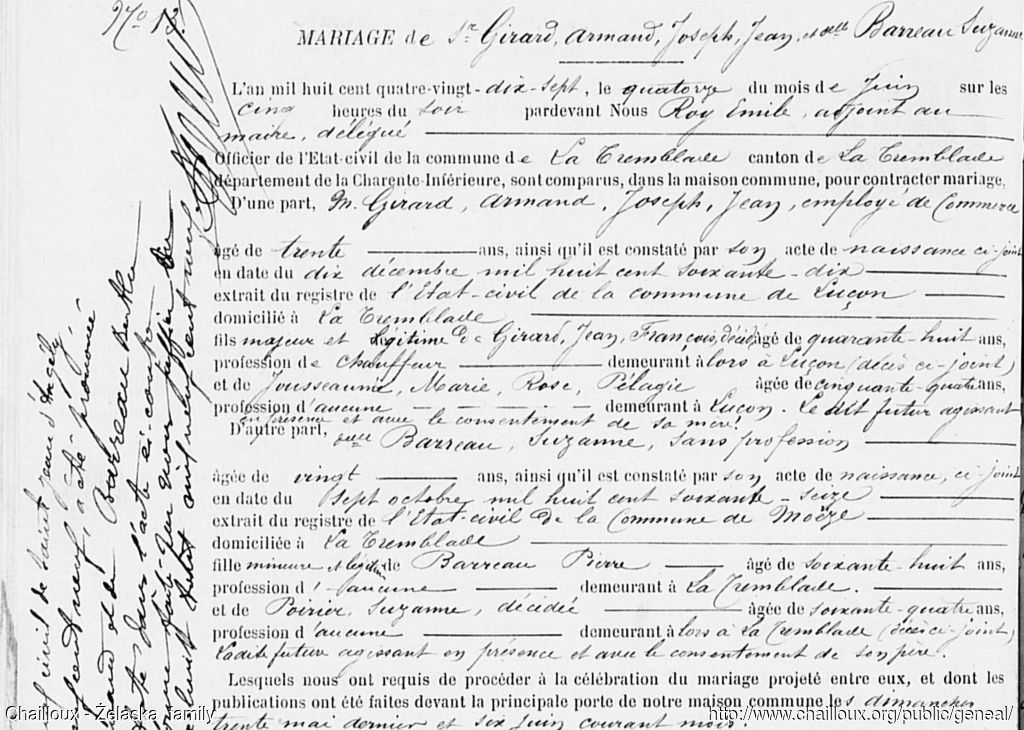 N.o 17.
MARIAGE de Sr Girard, Armand, Joseph, Jean, et delle Barreau Suzanne
L'an mil huit cent quatre-vingt-dix-sept, le quatorze du mois de Juin sur les
cinq heures du soir pardevant Nous Roy Emile, adjoint au
maire, délégué
Officier de l'Etat-civil de la commune de La Tremblade canton de La Tremblade
département de la Charente-Inférieure, sont comparus, dans la maison commune, pour contracter mariage,
D'une part, M. Girard, Armand, Joseph, Jean, employé de Commerce
âgé de trente ans, ainsi qu'il est constaté par son acte de naissance ci-joint
en date du dix décembre mil huit cent soixante-dix
extrait du registre de l'Etat-civil de la commune de Luçon
domicilié à La Tremblade
fils majeur et légitime de Girard, Jean, François, décédé âgé de quarante-huit ans,
profession de Chauffeur demeurant alors à Luçon (décès ci-joint)
et de Jousseaume, Marie, Rose, Pélagie âgée de cinquante-quatre ans,
profession d'aucune demeurant à Luçon. Le dit futur agissant
en présence et avec le consentement de sa mère.
D'autre part, delle Barreau, Suzanne, sans profession
âgée de vingt ans, ainsi qu'il est constaté par son acte de naissance, ci-joint
en date du sept octobre mil huit cent soixante-seize
extrait du registre de l'Etat-civil de la Commune de Moëze
domiciliée à La Tremblade
fille mineure et légitime de Barreau Pierre âgé de soixante-huit ans,
profession d'aucune demeurant à La Tremblade.
et de Poirier, Suzanne, décédée âgée de soixante-quatre ans,
profession d'aucune demeurant alors à La Tremblade (décès ci-joint)
Ladite future agissant en présence et avec le consentement de son père.
Lesquels nous ont requis de procéder à la célébration du mariage projeté entre eux, et dont les
publications ont été faites devant la principale porte de notre maison commune les dimanches
trente mai dernier et six juin courant mois.
civil de Saint Jean d'Angély,
cent neuf, a été prononcé
et de Barreau
dans l'acte ci-contre
fait par nous greffier du
huit août mil neuf cent neuf
Chailloux - Zelaska family
http://www.chailloux.org/public/geneal/